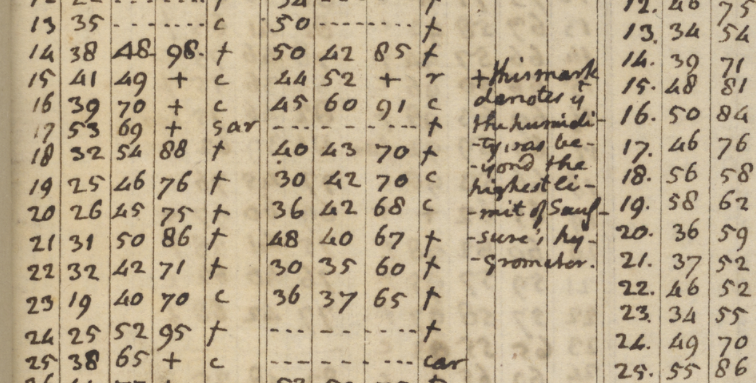 13 35 - - - - - - c 50 - - - - - - - - f
14 38 48 98 f 50 42 85 f
15 41 49 + c 44 52 + r
16 39 70 + c 45 60 91 c
17 53 69 + sar - - - - - - - - f
18 32 54 88 f 40 43 70 f
19 25 46 76 f 30 42 70 c
20 26 45 75 f 36 42 68 c
21 31 50 86 f 48 40 67 f
22 32 42 71 f 30 35 60 f
23 19 40 70 c 36 37 65 f
24 25 52 95 f - - - - - - - - f
25 38 65 + c - - - - - - - - car
+ this mark
denotes yt
the humidi-
-ty was be-
-yond the
highest li-
-mit of Sauf-
-sure's hy-
-grometer.
12. 46 75
13. 34 54
14. 39 71
15. 48 81
16. 50 84
17. 46 76
18. 56 58
19. 58 62
20. 36 59
21. 37 52
22. 46 52
23. 34 55
24. 49 70
25. 55 86